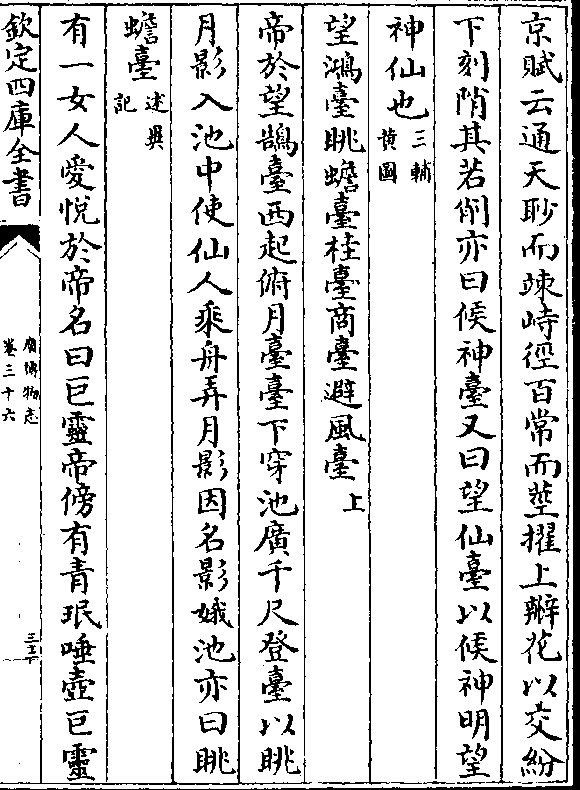 京賦云通天眇而竦峙徑百常而莖擢上辬花以交紛
下刻陗其若削亦曰候神臺又曰望仙臺以候神明望
神仙也三輔黄圖
望鴻臺眺蟾臺桂臺商臺避風臺上
帝於望鵠臺西起俯月臺臺下穿池廣千尺登臺以眺
月影入池中使仙人乘舟弄月影因名影娥池亦曰眺
蟾臺述異記
有一女人愛悅於帝名曰巨靈帝傍有青珉唾壺巨靈
欽定四庫全書
廣博物志
卷三十六